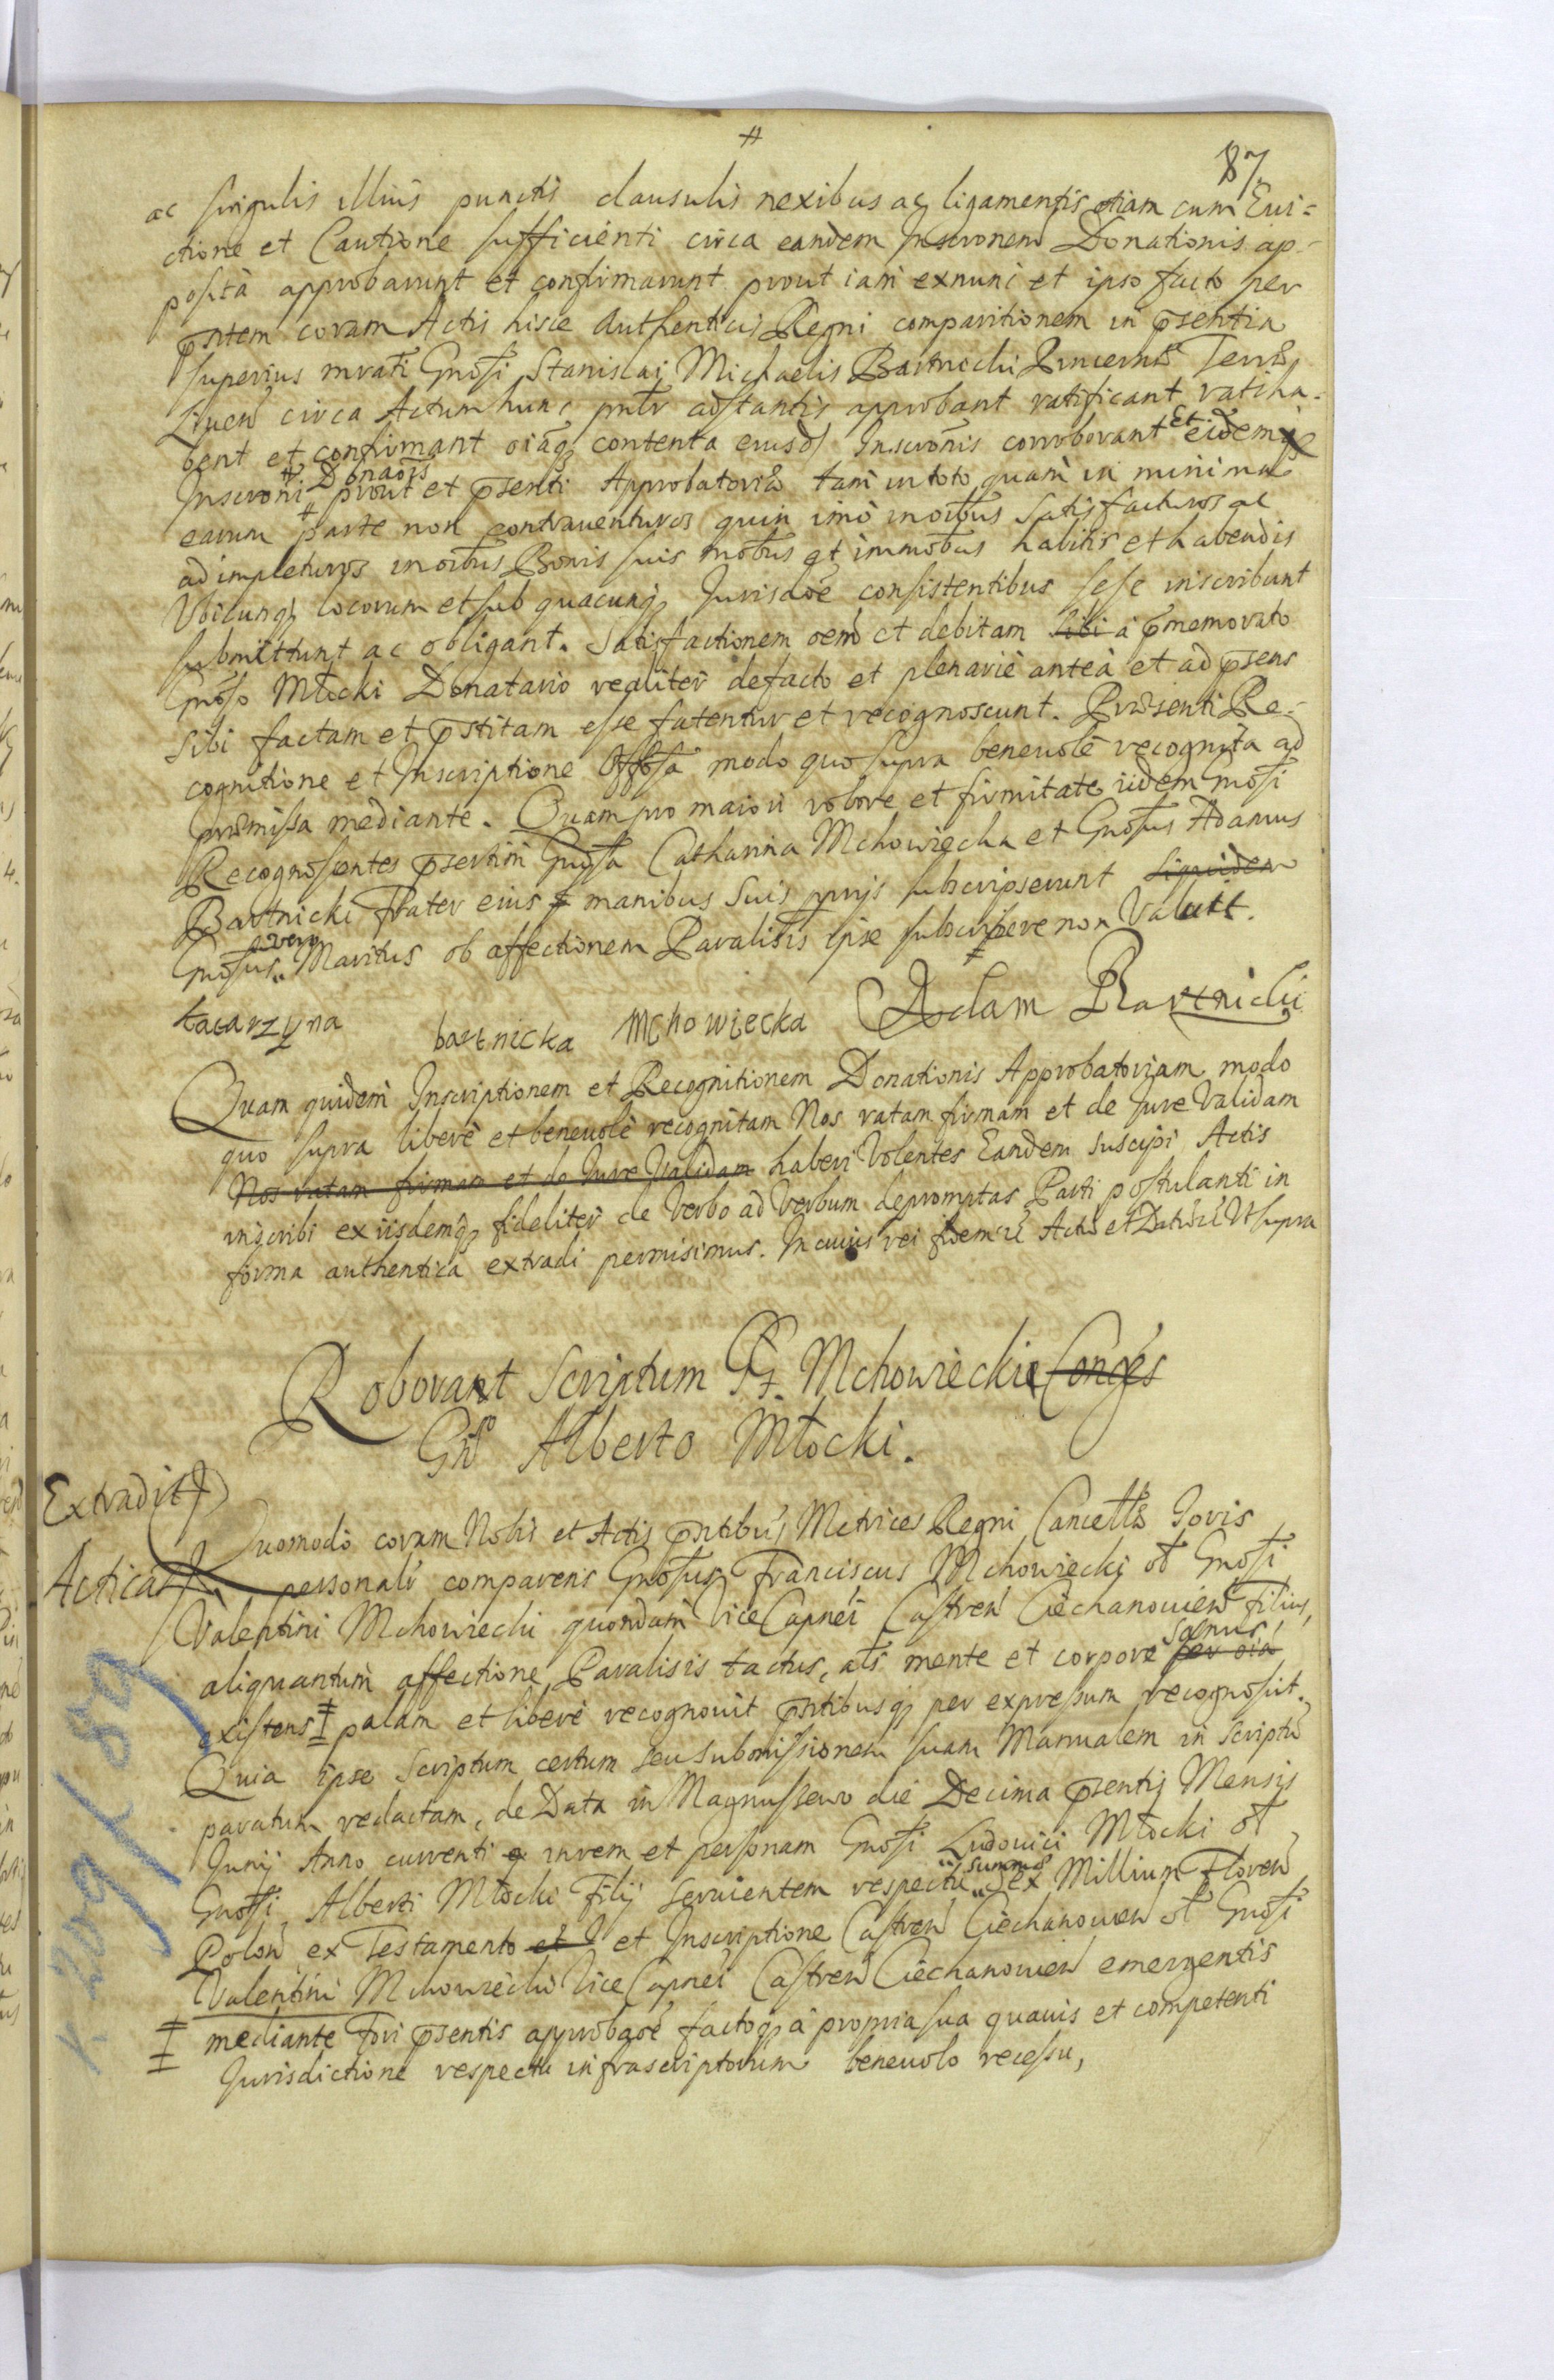 #
87
ac singulis illius punctis clausulis nexibus ac ligamentis etiam cum Evi=
ctione et Cautione sufficienti circa eandem Inscronem Donationis ap-
posità approbarunt et confirmarunt prout iam exnunc et ipso facto per
pntem coram Actis hisce Authenticis Regni comparitionem in pñsentia
superius mrati Gnosi Staniscai Michaelis Bartnicki Pincernæ Terræ
Liuen circa Actum hunc pntr adstantis approbant ratificant ratiha-
bent et confirmant oiaq contenta eiusd Inscronis corroborant Et eidemq
Inscroni # Donaois prout et psenti Approbatoriæ tam in toto quam in minima
earum # parte non contrauenturos quin imò inoibus Satisfacturos ac
adimpleturos inoibus Bonis suis mobus et immobus habitis et habendis
Vbicunq locorum et sub quacunq Jurisdoe consistentibus sese inscribunt
submittunt ac obligant. Satisfactionem oem et debitam sibi à pmemorato
Gnoso Młocki Donatario realiter defacto et plenariè anteà et ad psens
Sibi factam et pstitam esse fatentur et recognoscunt. Præsenti Re-
cognitione et Inscriptione Offosa modo quo supra beneuolè recognita ad
præmissa mediante. Quam pro maiori robore et firmitate iidem Gnosi
Recognoscentes psertim Gnosa Catharina Mchowiecka et Gnosus Adamus
Bartnicki Frater eius # manibus Suis pprijs subscripserunt Siquidem
Gnosus vero Maritus ob affectionem Paralisis ipse subscribere non Valuit.
Katarzyna bartnicka Mchowiecka Adam Bartnicki
Quam quidem Inscriptionem et Recognitionem Donationis Approbatoriam modo
quo supra liberè et beneuolè recognitam Nos ratam firmam et de Jure Validam
Nos ratam firmam et de Jure Validam haberi Volentes Eandem suscipi Actis
inscribi ex iisdemq fideliter de Verbo ad Verbum depromptas Parti postulanti in
forma authentica extradi permisimus. In cuius rei fidem Actũ et Datũ Ut supra
Roborant Scriptum Mchowiecki Conges
Gnso Alberto Młocki.
Extradit
Acticat
Quomodò coram Nobis et Actis pntibus Metrices Regni Cancell Iovis
personalr comparens Gnosus Franciscus Mchowiecki ol Gnosi
Valentini Mchowiecki quondam ViceCapnei Castren Ciechanouien Filius,
aliquantùm affectione Paralisis tactus, als mente et corpore sanus per oia
existens ‡ palam et liberè recognouit pntibusq per expressum recognoscit.
Quia ipse Scriptum certum seu submissionem suam Manualem in Scriptũ
paratum redactam, de Data in Magnuszew die Decima psentis Mensis
Junij Anno currenti inrem et personam Gnosi Ludouici Młocki ol
Gnosi Alberti Młocki Filij Seruientem respectu Summæ Sex Millium Floren
Polon ex Testamento et I et Inscriptione Castren Ciechanouien ol Gnosi
Valentini Mchowiecki ViceCapnei Castren Ciechanouien emergentis
‡ mediante Fori psentis approbaoe factoq à propria sua quauis et competenti
Jurisdictione respectu infrascriptorum beneuolo recessu,